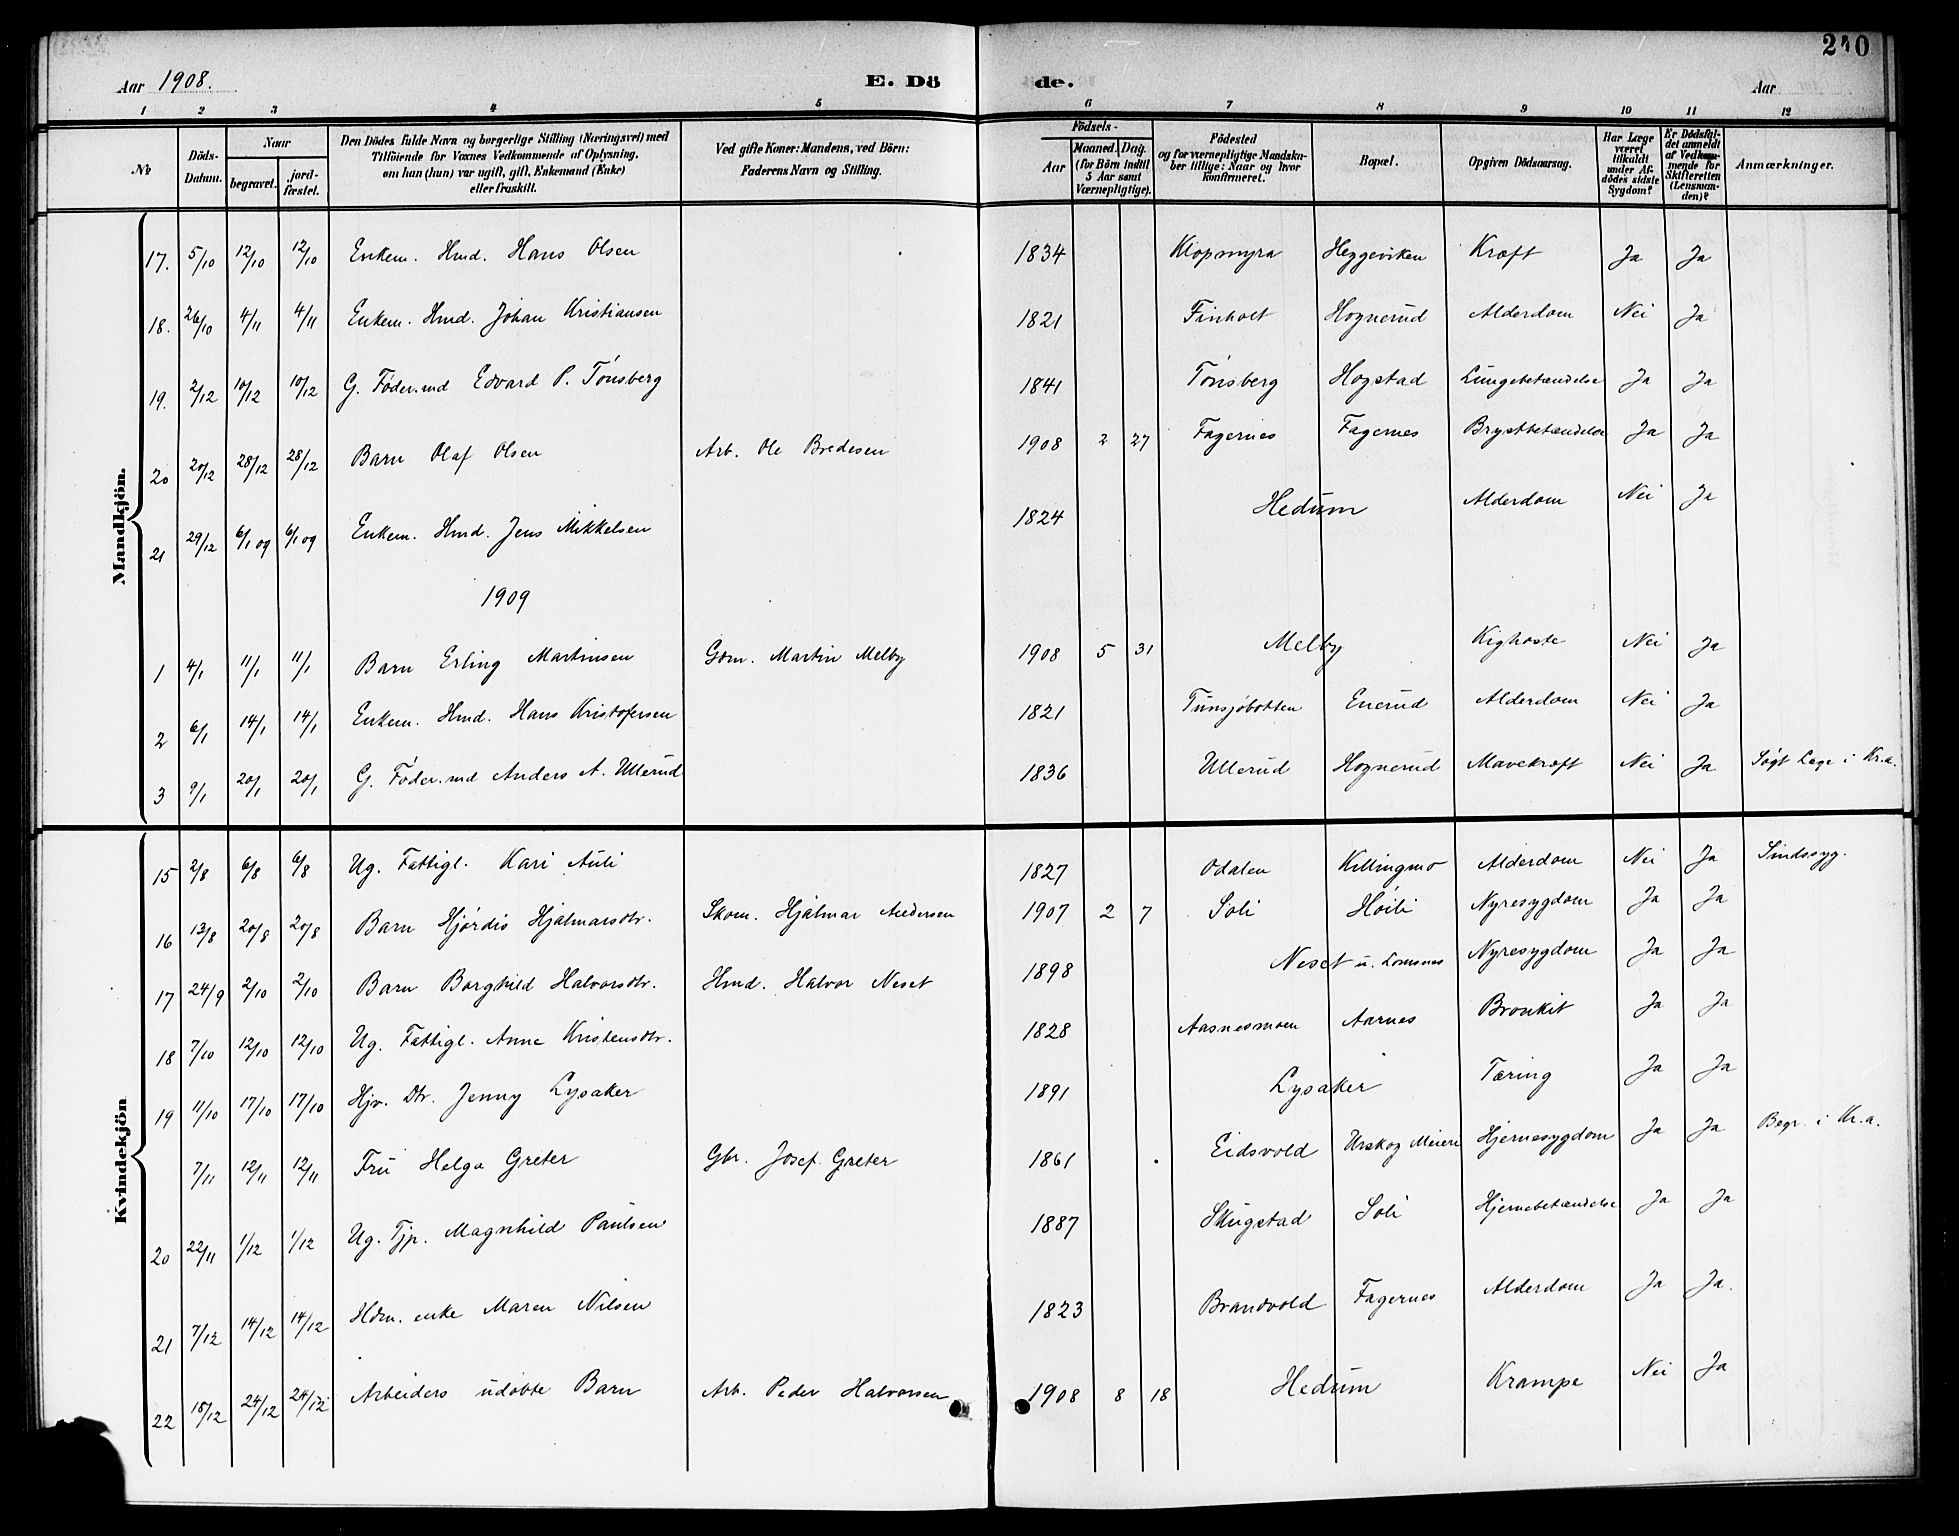 240
Aar 1908. E. Dö de. Aar
1 2 3 4 5 6 7 8 9 10 11 12
№ Döds-Datum. Naar begravet. jord-fæstet. Den Dödes fulde Navn og borgerlige Stilling (Næringsvei) med Tilföiende for Voxnes Vedkommende af Oplysning, om han (hun) var ugift, gift, Enkemand (Enke) eller fraskilt. Ved gifte Koner: Mandens, ved Börn: Faderens Navn og Stilling. Födsels- Aar Maaned. Dag. (for Börn indtil 5 Aar samt Værnepligtige). Födested og for værnepligtige Mandska-ber tillige: Naar og hvor konfirmeret. Bopæl. Opgiven Dödsaarsag. Har Læge været tilkaldt under Af-dödes sidste Sygdom? Er Dödsfal-det anmeldt af Vedkom-mende for Skifteretten (Lensman-den)? Anmærkninger.
Mandkjön.
17. 5/10 12/10 12/10 Enkem. Hmd. Hans Olsen 1834 Klopmyra Heggeviken Kræft Ja Ja
18. 26/10 4/11 4/11 Enkem. Hmd. Johan Kristiansen 1821 Finholt Hognerud Alderdom Nei Ja
19. 2/12 10/12 10/12 G. Føder.md Edvard P. Tønsberg 1841 Tønsberg Hogstad Lungebetændelse Ja Ja
20 20/12 28/12 28/12 Barn Olaf Olsen Arb. Ole Bredesen 1908 2 27 Fagernes Fagernes Brystbetændelse Ja Ja
21 29/12 6/1 09 6/1 09 Enkem. Hmd. Jens Mikkelsen 1824 Hedum Alderdom Nei Ja
1909
1 4/1 11/1 11/1 Barn Erling Martinsen Gdm. Martin Melby 1908 5 31 Melby Kighoste Nei Ja
2 6/1 14/1 14/1 Enkem. Hmd. Hans Kristofersen 1821 Tunsjøbotten Enerud Alderdom Nei Ja
3 9/1 20/1 20/1 G. Føder.md Anders A. Ullerud 1836 Ullerud Hognerud Mavekræft Nei Ja Søgt Læge i Kr.a.
Kvindekjön
15 2/8 6/8 6/8 Ug. Fattigl. Kari Auli 1827 Odalen Killingmo Alderdom Nei Ja Sindssyg.
16 13/8 20/8 20/8 Barn Hjørdis Hjalmarsdtr. Skom. Hjalmar Andersen 1907 2 7 Soli Høili Nyresygdom Ja Ja
17 24/9 2/10 2/10 Barn Borghild Halvorsdtr. Hmd. Halvor Neset 1898 Neset u. Lomsnes Nyresygdom Ja Ja
18 7/10 12/10 12/10 Ug. Fattigl. Anne Kristensdtr. 1828 Aasnesmoen Aarnes Bronkit Ja Ja
19 11/10 17/10 17/10 Hjv. Dtr. Jenny Lysaker 1891 Lysaker Tæring Ja Ja
7/11 12/11 12/11 Fru Helga Greter Gbr. Josef Greter 1861 Eidsvold Urskog Meieri Hjernesygdom Ja Ja Begr. i Kr.a.
20 22/11 1/12 1/12 Ug. Tjp. Magnhild Paulsen 1887 Skugstad Soli Hjernebetændelse Ja Ja
21 7/12 14/12 14/12 Hdm. enke Maren Nilsen 1823 Brandvold Fagernes Alderdom Ja Ja.
22 18/12 24/12 24/12 Arbeiders udøbte Barn Arb. Peder Halvorsen 1908 8 18 Hedum Krampe Nei Ja